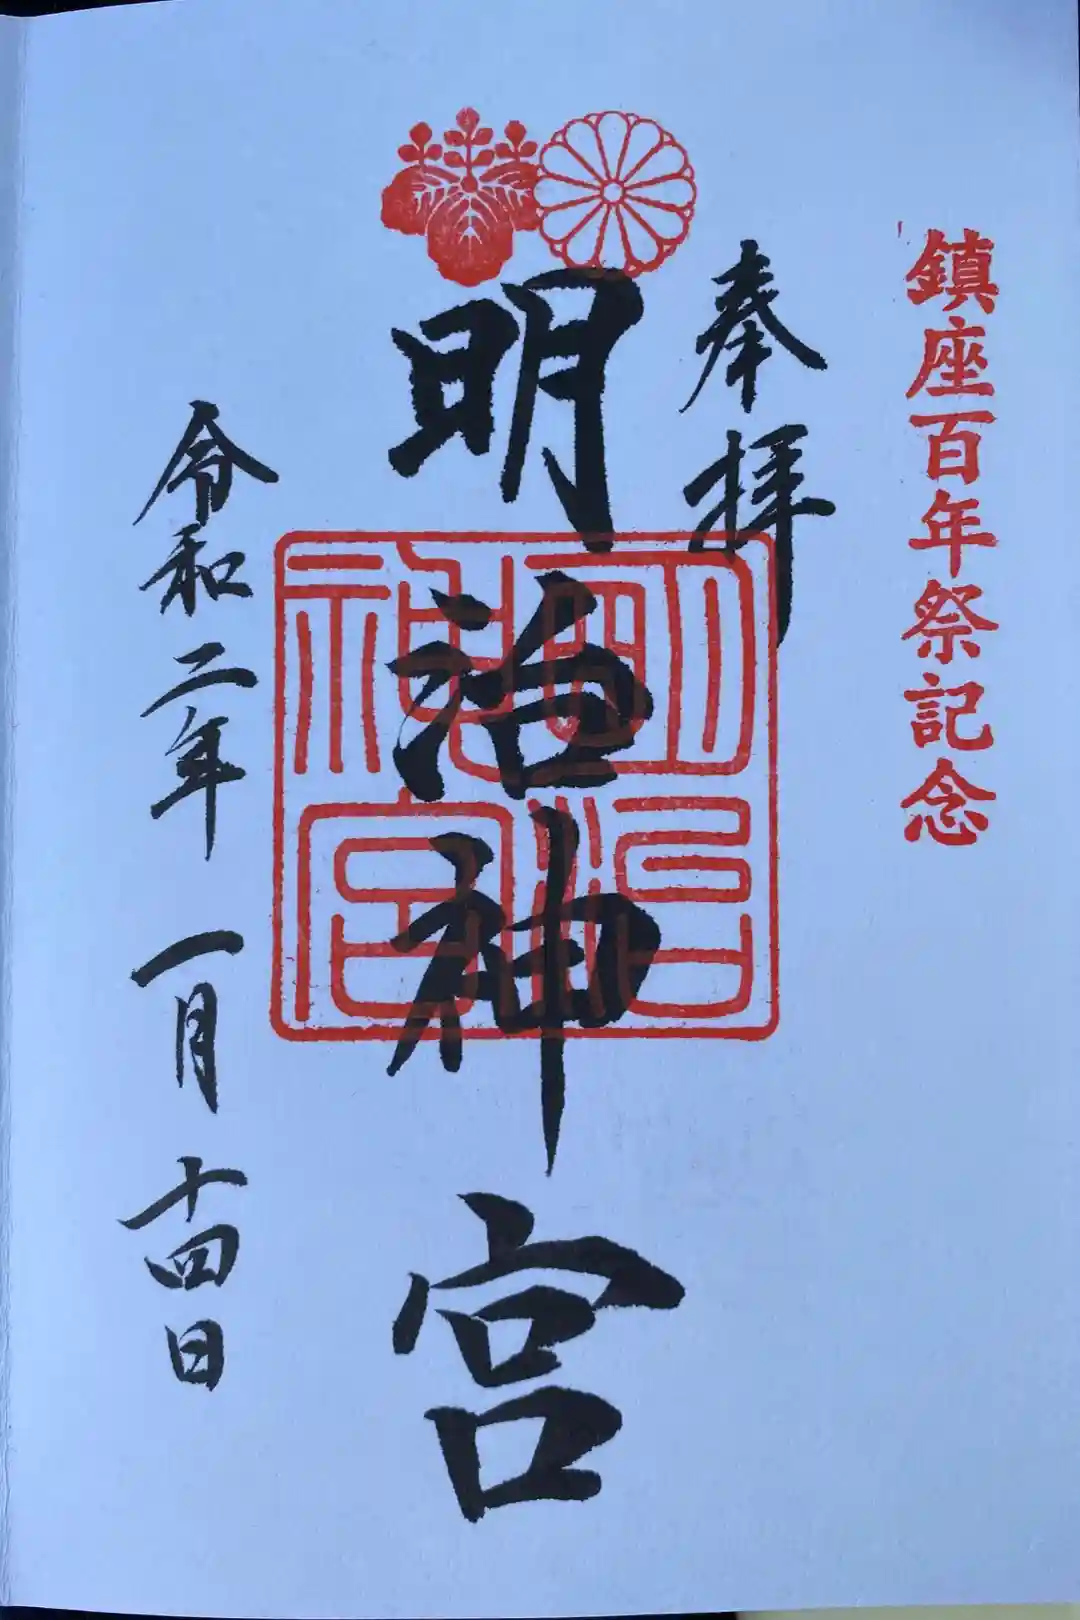 鎮座百年祭記念
奉拝
明治神宮
明治神宮
令和二年一月十四日